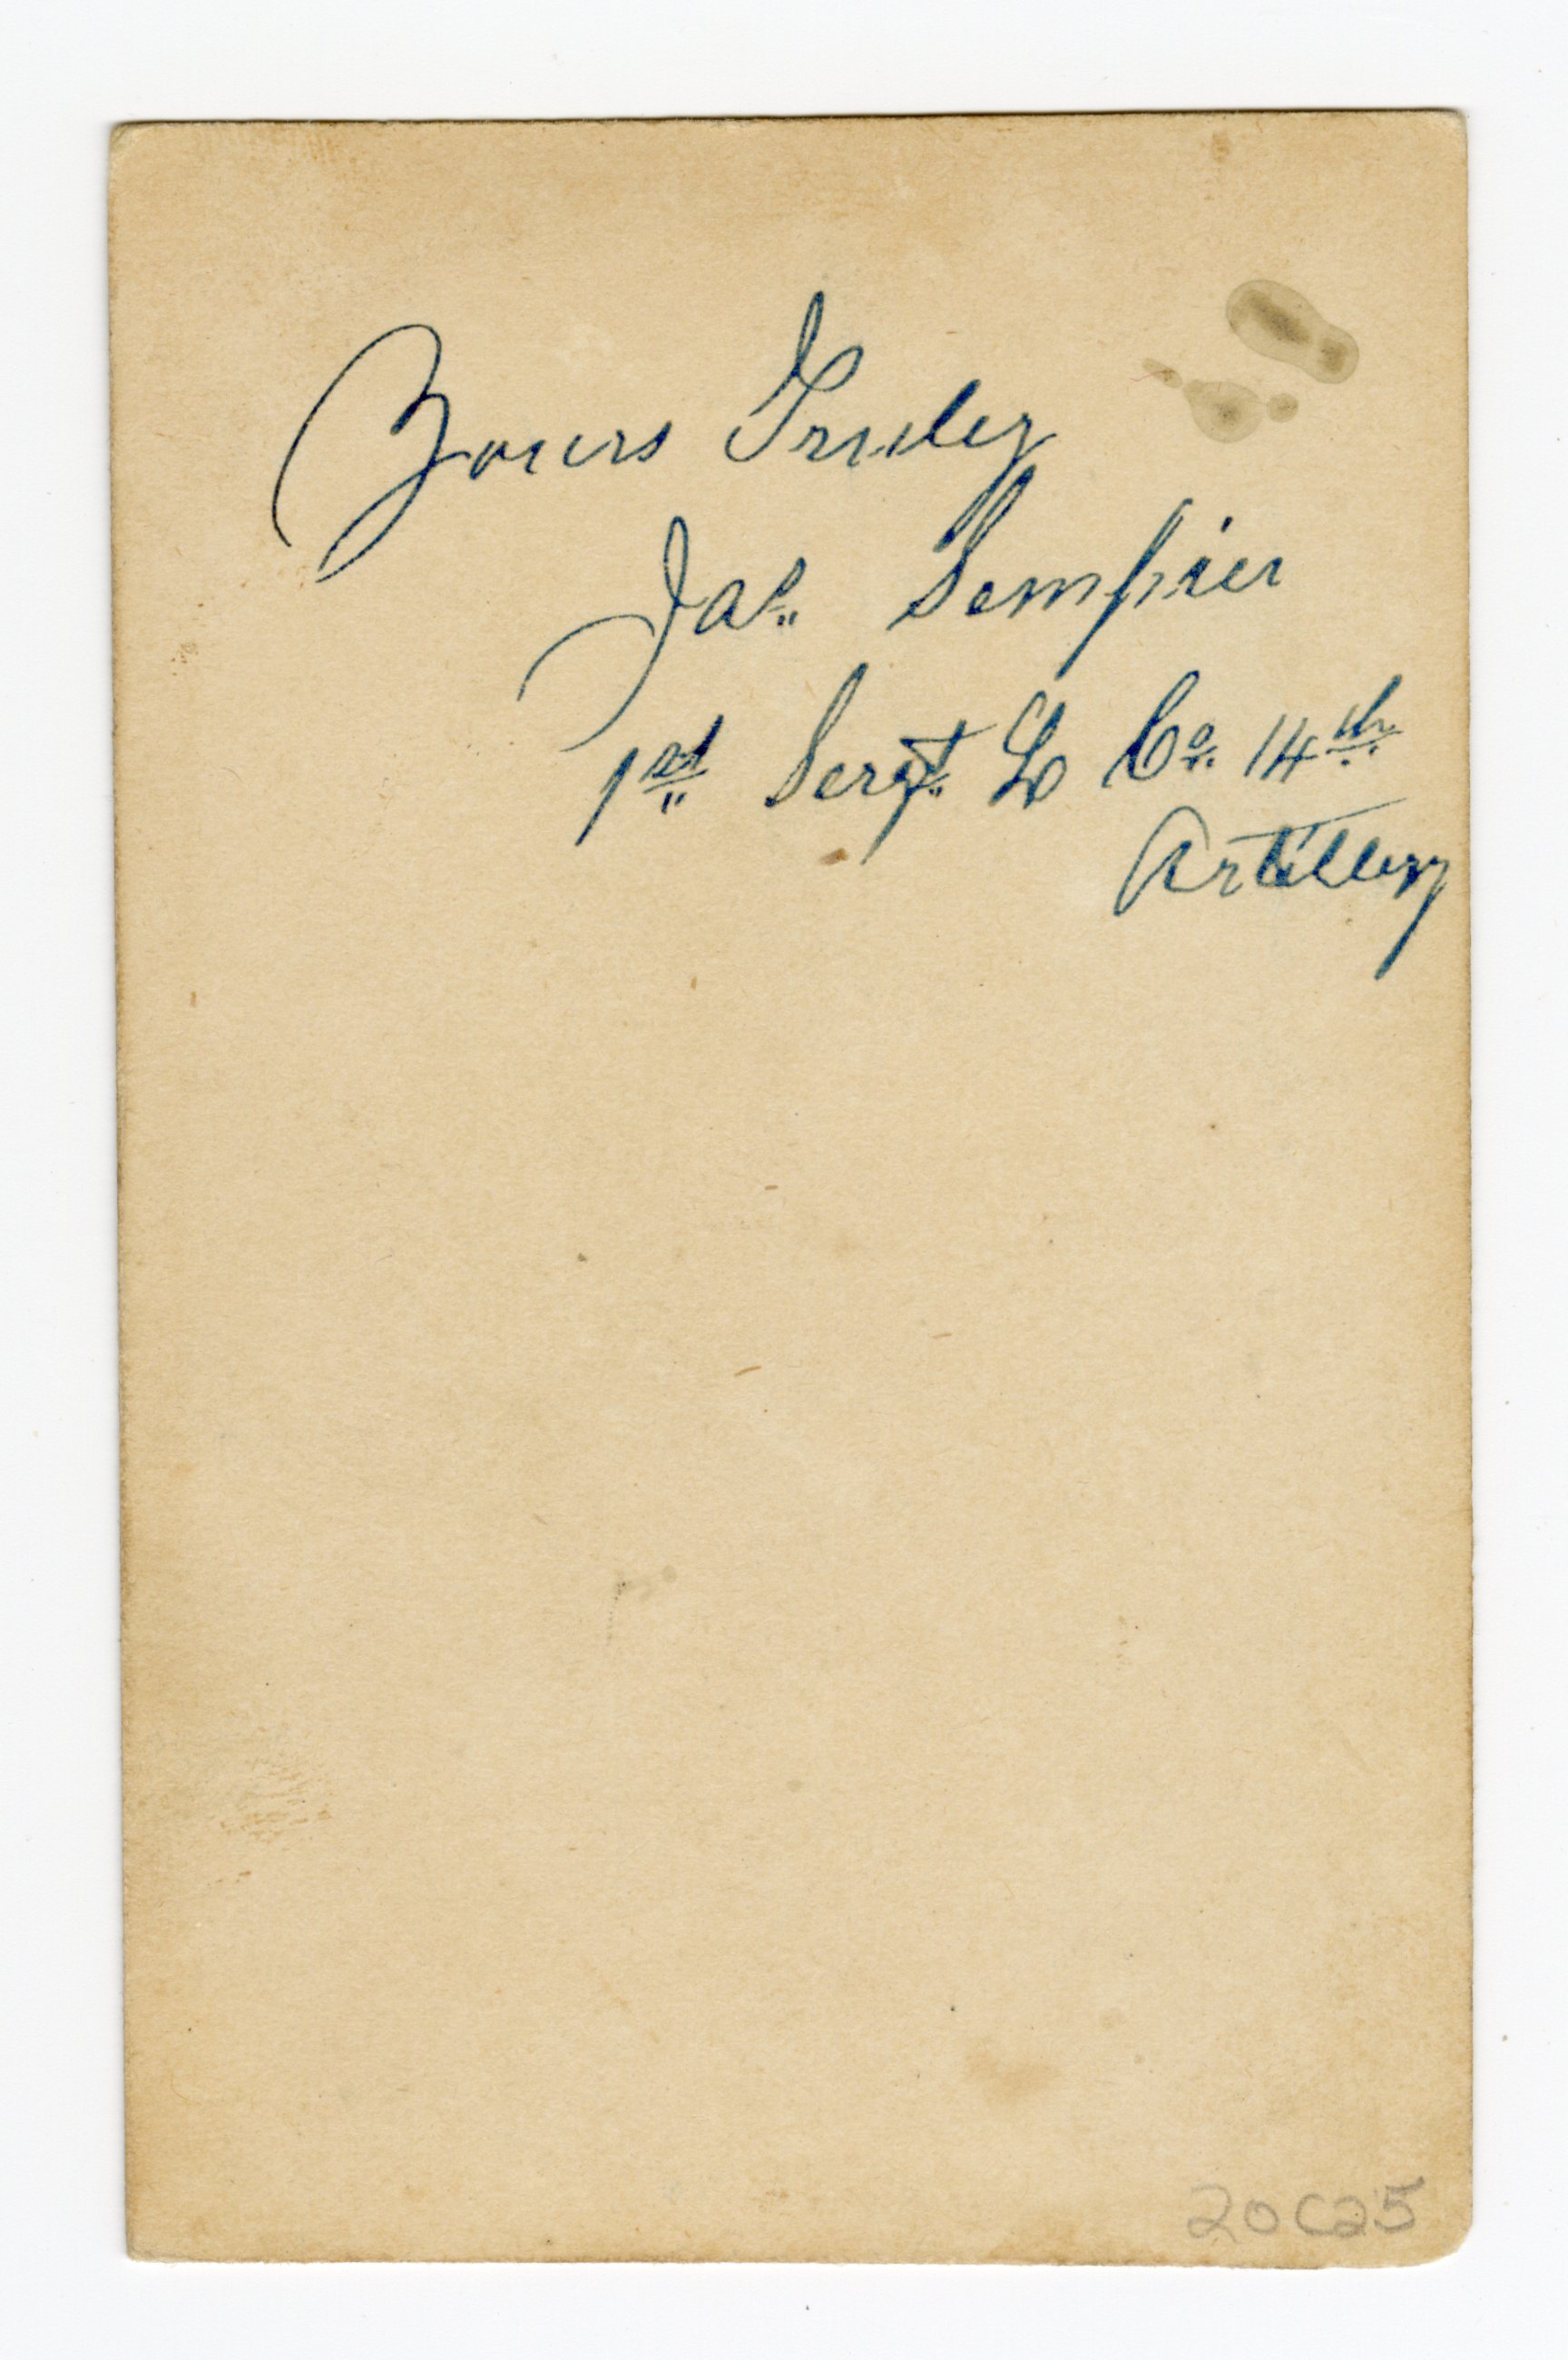 Yours Truley
Jas. Sempier
1st Sergt. L Co. 14th
Artillery
20C25